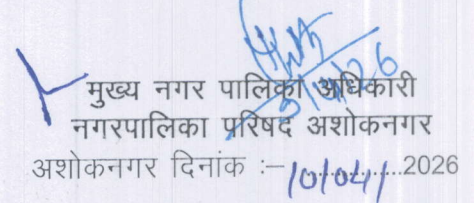 मुख्य नगर पालिका अधिकारी
नगरपालिका परिषद अशोकनगर
अशोकनगर दिनांक :– 10/04/.........2026